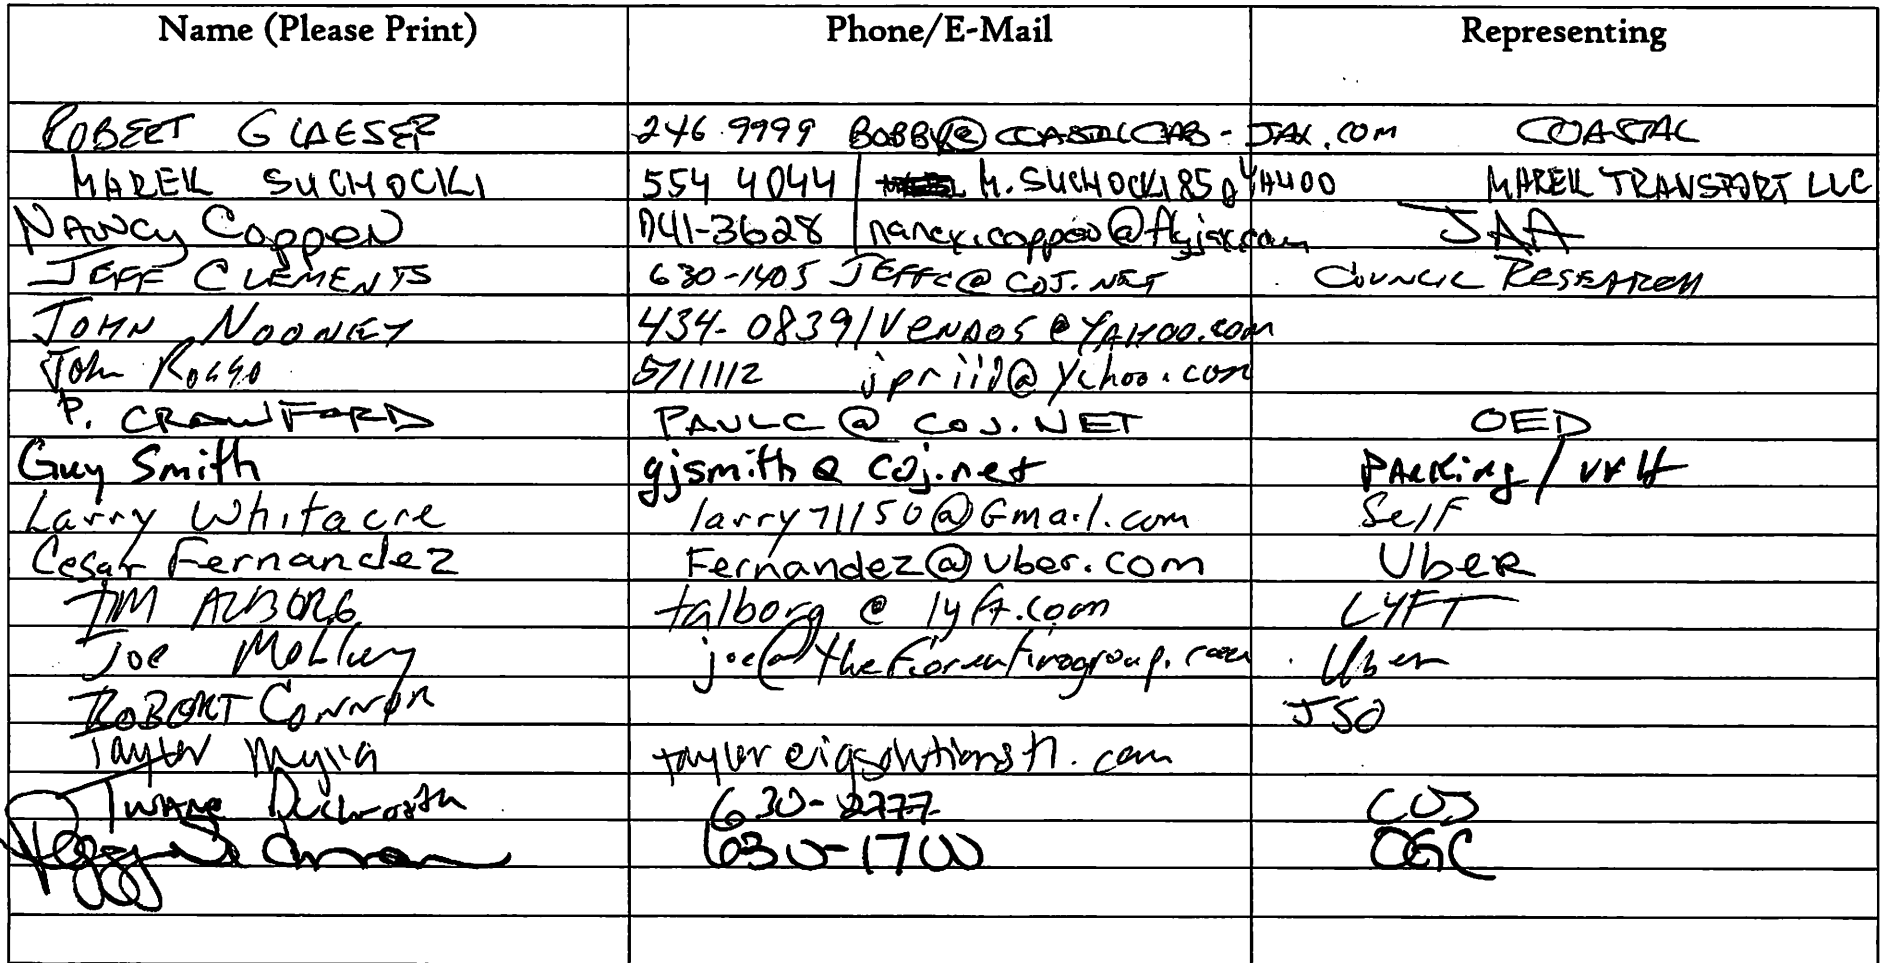 Name (Please Print) Phone/E-Mail Representing
ROBERT GLAESER 246 9999 BOBBY@COASTALCAB-JAX.COM COASTAL
MAREK SUCHOCKI 554 4044 M.SUCHOCKI85@YAHOO MAREK TRANSPORT LLC
NANCY COPPEN 741-3628 nancy.coppen@flyjax.com JAA
JEFF CLEMENTS 630-1405 JEFFC@COJ.NET COUNCIL RESEARCH
JOHN NOONEY 434-0839/VENDOS@YAHOO.com
John 5711112 jpriii@yahoo.com
P. CRAWFORD PAULC@COJ.NET OED
Guy Smith gjsmith@coj.net PARKING/
Larry Whitacre larry71150@Gmail.com Self
Cesar Fernandez Fernandez@uber.com Uber
TIM ALBORG talborg@lyft.com LYFT
Joe joe@thefiorentinogroup.com Uber
ROBERT CONNOR JSO
Taylor taylor@igsolutionsfl.com
630- COJ
Peggy 630-1700 OGC